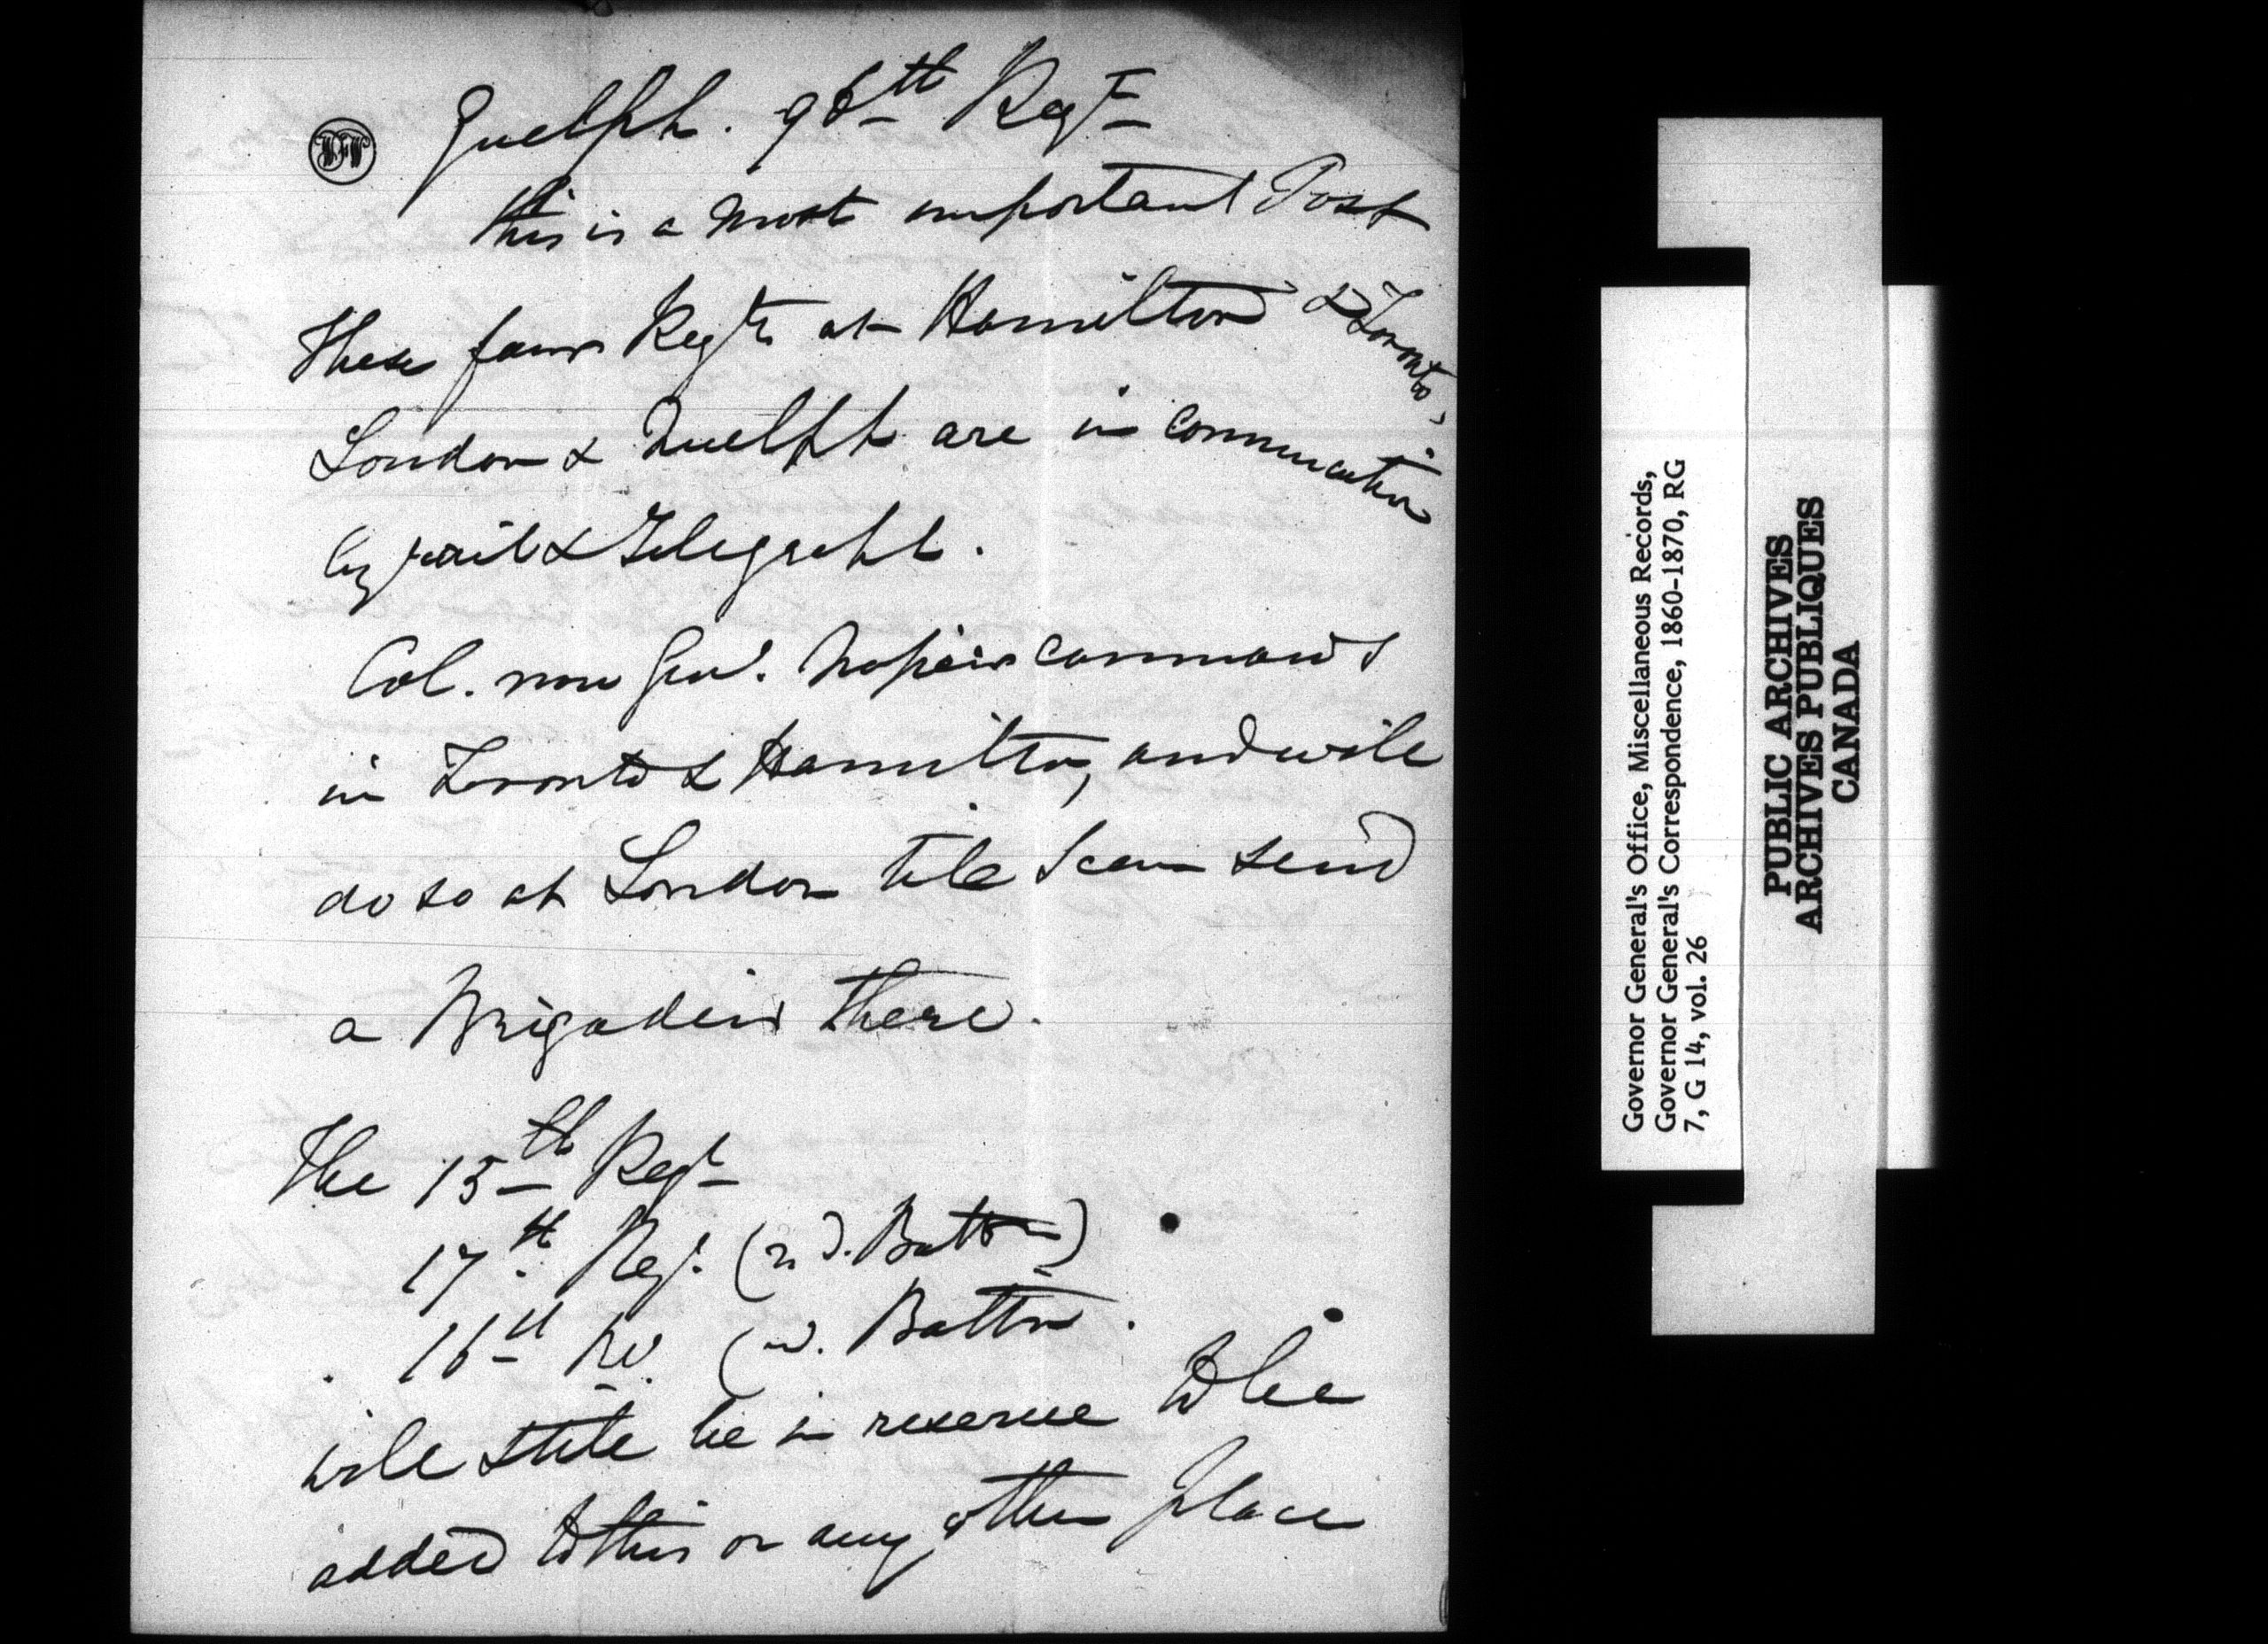 Guelph. 96th Regt
this is a most important Post
These four Regts at Hamilton & Toronto,
London & Guelph are in communication
by rail & Telegraph.
Col. now Genl. Napier commands
in Toronto & Hamilton, and will
do so at London till I can send
a Brigadier there.
The 15th Regt
17th Regt. (2d. Battn)
16th Do. (2d. Battn.
will still be in reserve to be
added to this or any other place
Governor General's Office, Miscellaneous Records,
Governor General's Correspondence, 1860-1870, RG
7, G 14, vol. 26
PUBLIC ARCHIVES
ARCHIVES PUBLIQUES
CANADA